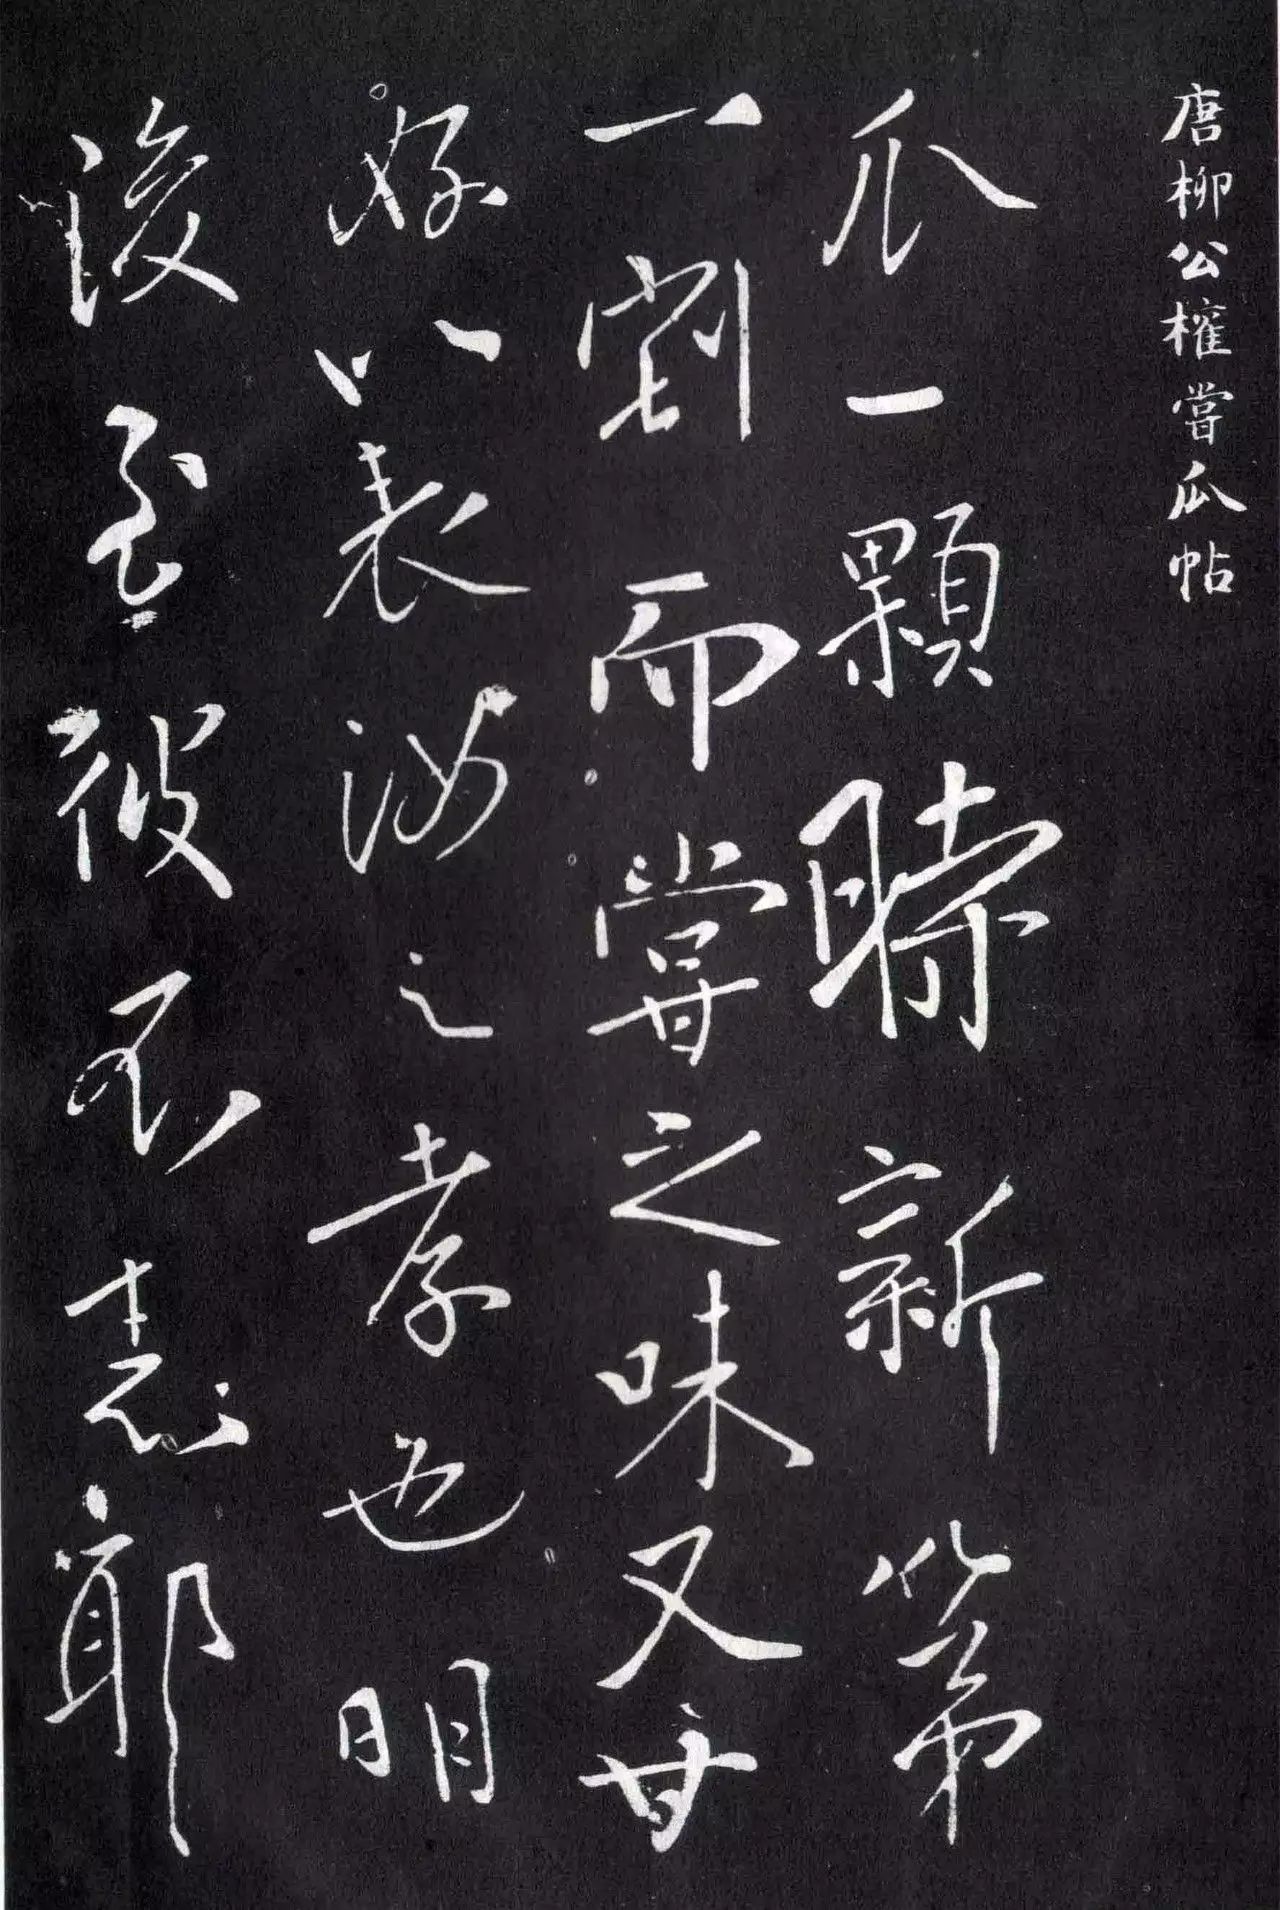 唐柳公權嘗瓜帖
瓜一顆時新第
一割而嘗之味又甘
好以表汝之孝也明
後至彼不耶